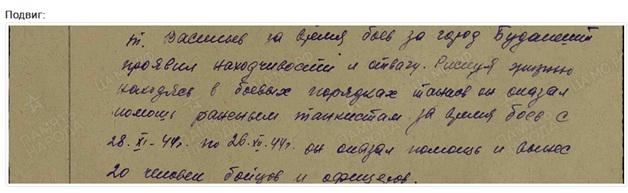 Подвиг:
т. Васильев за время боев за город Будапешт
проявил находчивость и отвагу. Рискуя жизнью
находясь в боевых порядках танков он оказал
помощь раненым танкистам за время боев с
28.XI-44г. по 26.XII.44г. он оказал помощь и вынес
20 человек бойцов и офицеров.